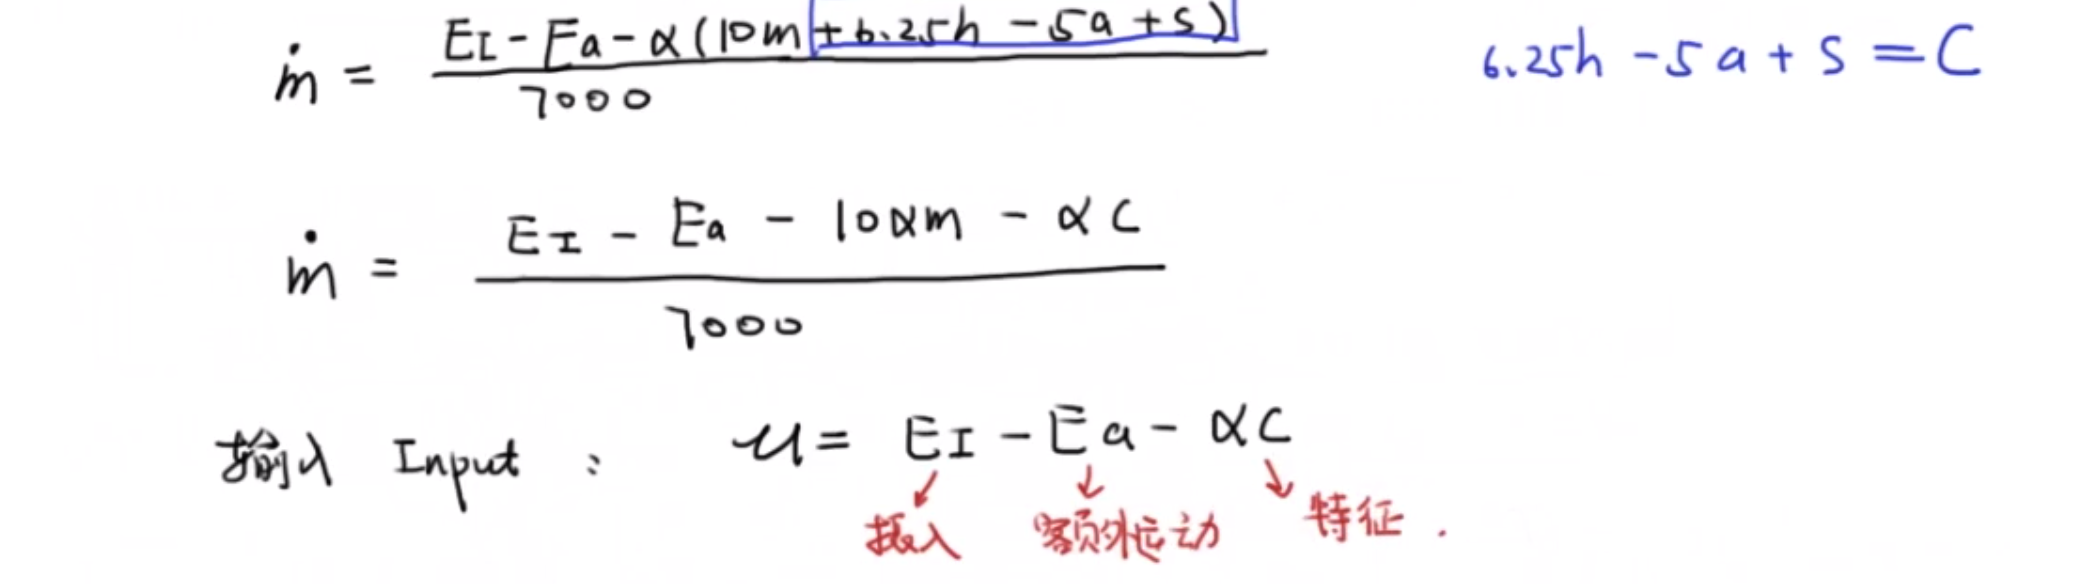 ṁ = (E_I - E_a - α(10m + 6.25h - 5a + s)) / 7000    6.25h - 5a + s = C
ṁ = (E_I - E_a - 10αm - αC) / 7000
输入 Input : u = E_I - E_a - αC
摄入 额外运动 特征.